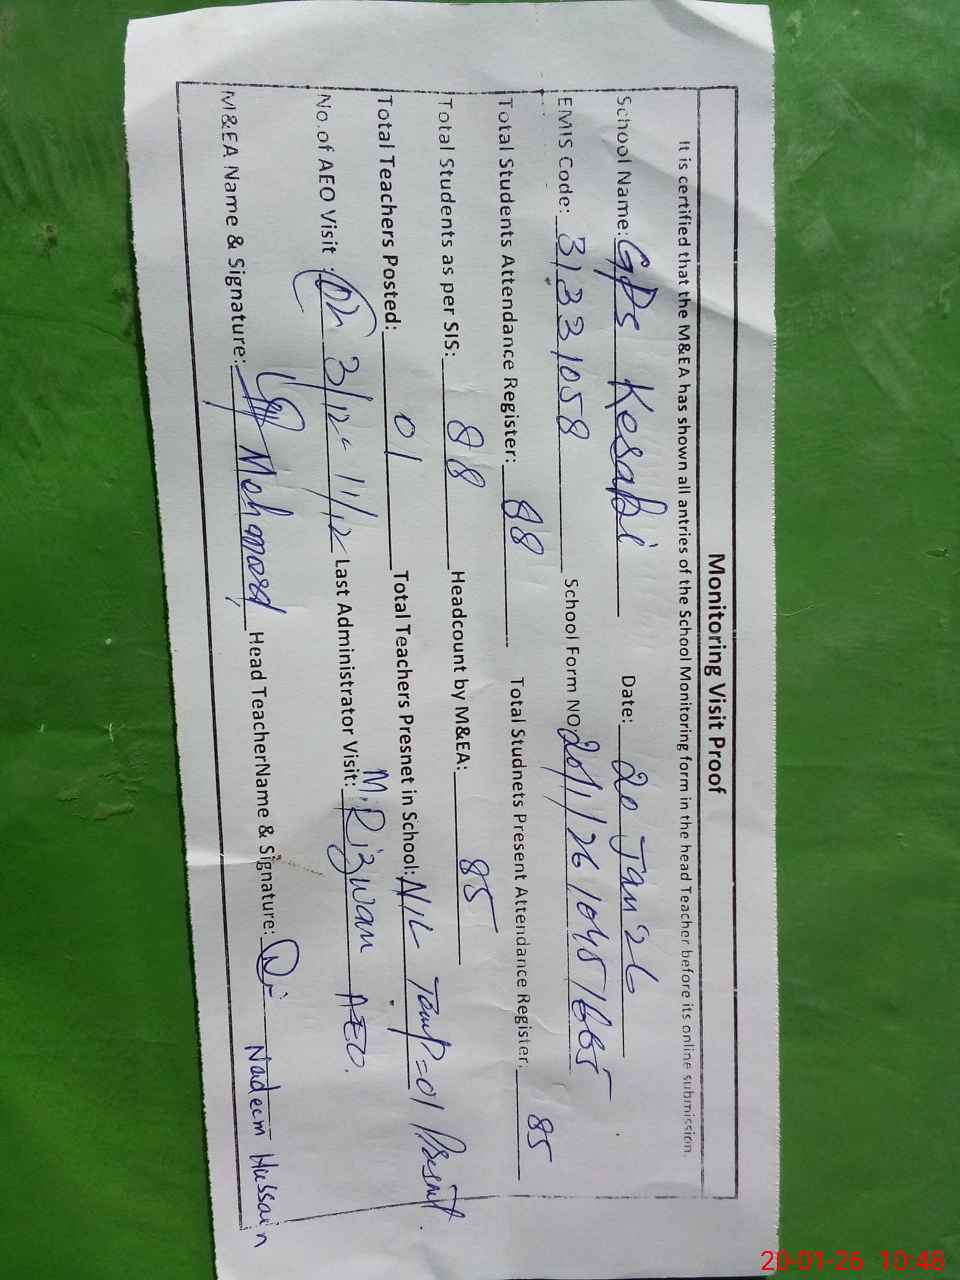 Monitoring Visit Proof
It is certified that the M&EA has shown all antries of the School Monitoring form in the head Teacher before its online submission.
School Name: GPS Kesabi Date: 20 Jan 26
EMIS Code: 31331058 School Form NO 20/1/26 1045 1665
Total Students Attendance Register: 88 Total Studnets Present Attendance Register: 85
Total Students as per SIS: 88 Headcount by M&EA: 85
Total Teachers Posted: 01 Total Teachers Presnet in School: NIL Temp=01 Present.
No.of AEO Visit : 02 3/12- 11/12 Last Administrator Visit: M.Rizwan AEO.
M&EA Name & Signature: Mohamad Head TeacherName & Signature: Nadeem Hussain
20-01-26 10:48